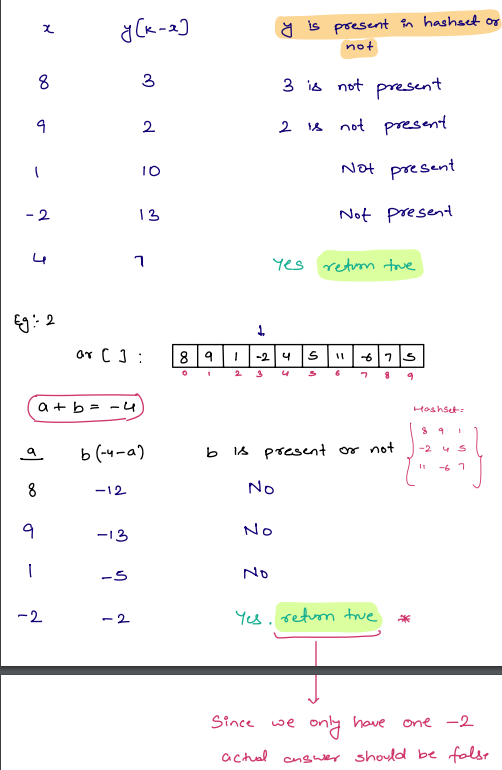 x y[k-x] y is present in hashset or
not
8 3 3 is not present
9 2 2 is not present
1 10 Not present
-2 13 Not present
4 7 Yes return true
Eg:- 2
ar [ ] : 8 9 1 -2 4 5 11 -6 7 5
0 1 2 3 4 5 6 7 8 9
a + b = -4
Hashset:
8 9 1
-2 4 5
11 -6 7
a b(-4-a) b is present or not
8 -12 No
9 -13 No
1 -5 No
-2 -2 Yes. return true *
Since we only have one -2
actual answer should be false